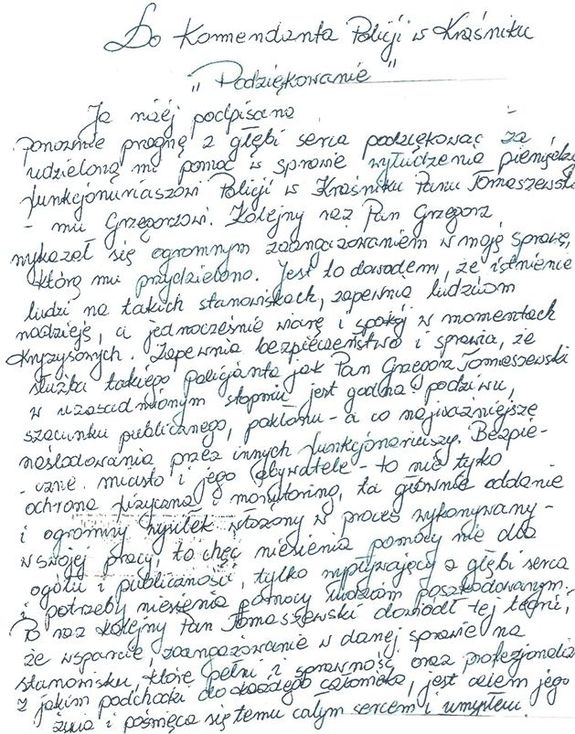 Do Komendanta Policji w Kraśniku
"Podziękowanie"
Ja niżej podpisana
ponownie pragnę z głębi serca podziękować za
udzieloną mi pomoc w sprawie wyłudzenia pieniędzy
funkcjonariuszowi Policji w Kraśniku Panu Tomaszewski
- mu Grzegorzowi. Kolejny raz Pan Grzegorz
wykazał się ogromnym zaangażowaniem w moją sprawę,
którą mu przydzielono. Jest to dowodem, że istnienie
ludzi na takich stanowiskach, zapewnia ludziom
nadzieję, a jednocześnie wiarę i spokój w momentach
kryzysowych. Zapewnia bezpieczeństwo i sprawia, że
służba takiego policjanta jak Pan Grzegorz Tomaszewski
w uzasadnionym stopniu jest godna podziwu,
szacunku publicznego, pokłonu - a co najważniejsze
naśladowania przez innych funkcjonariuszy. Bezpie-
-czne miasto i jego obywatele - to nie tylko
ochrona fizyczna i monitoring, to głównie oddanie
i ogromny wysiłek włożony w proces wykonywany -
w swojej pracy, to chęć niesienia pomocy nie dla
ogółu i publiczności, tylko wypływający z głębi serca
i potrzeby niesienia pomocy ludziom poszkodowanym.
Po raz kolejny Pan Tomaszewski dowiódł tej teorii,
że wsparcie, zaangażowanie w danej sprawie na
stanowisku, które pełni i sprawność oraz profesjonalizm
z jakim podchodzi do każdego człowieka, jest celem jego
życia i poświęca się temu całym sercem i umysłem.